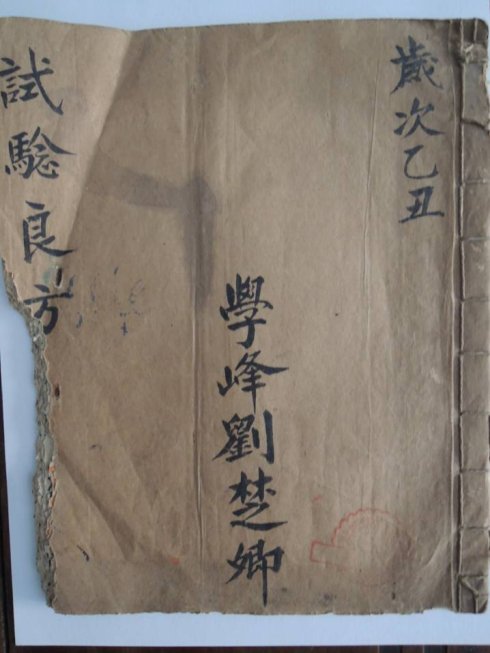 歲次乙丑
學峰劉楚卿
試驗良方